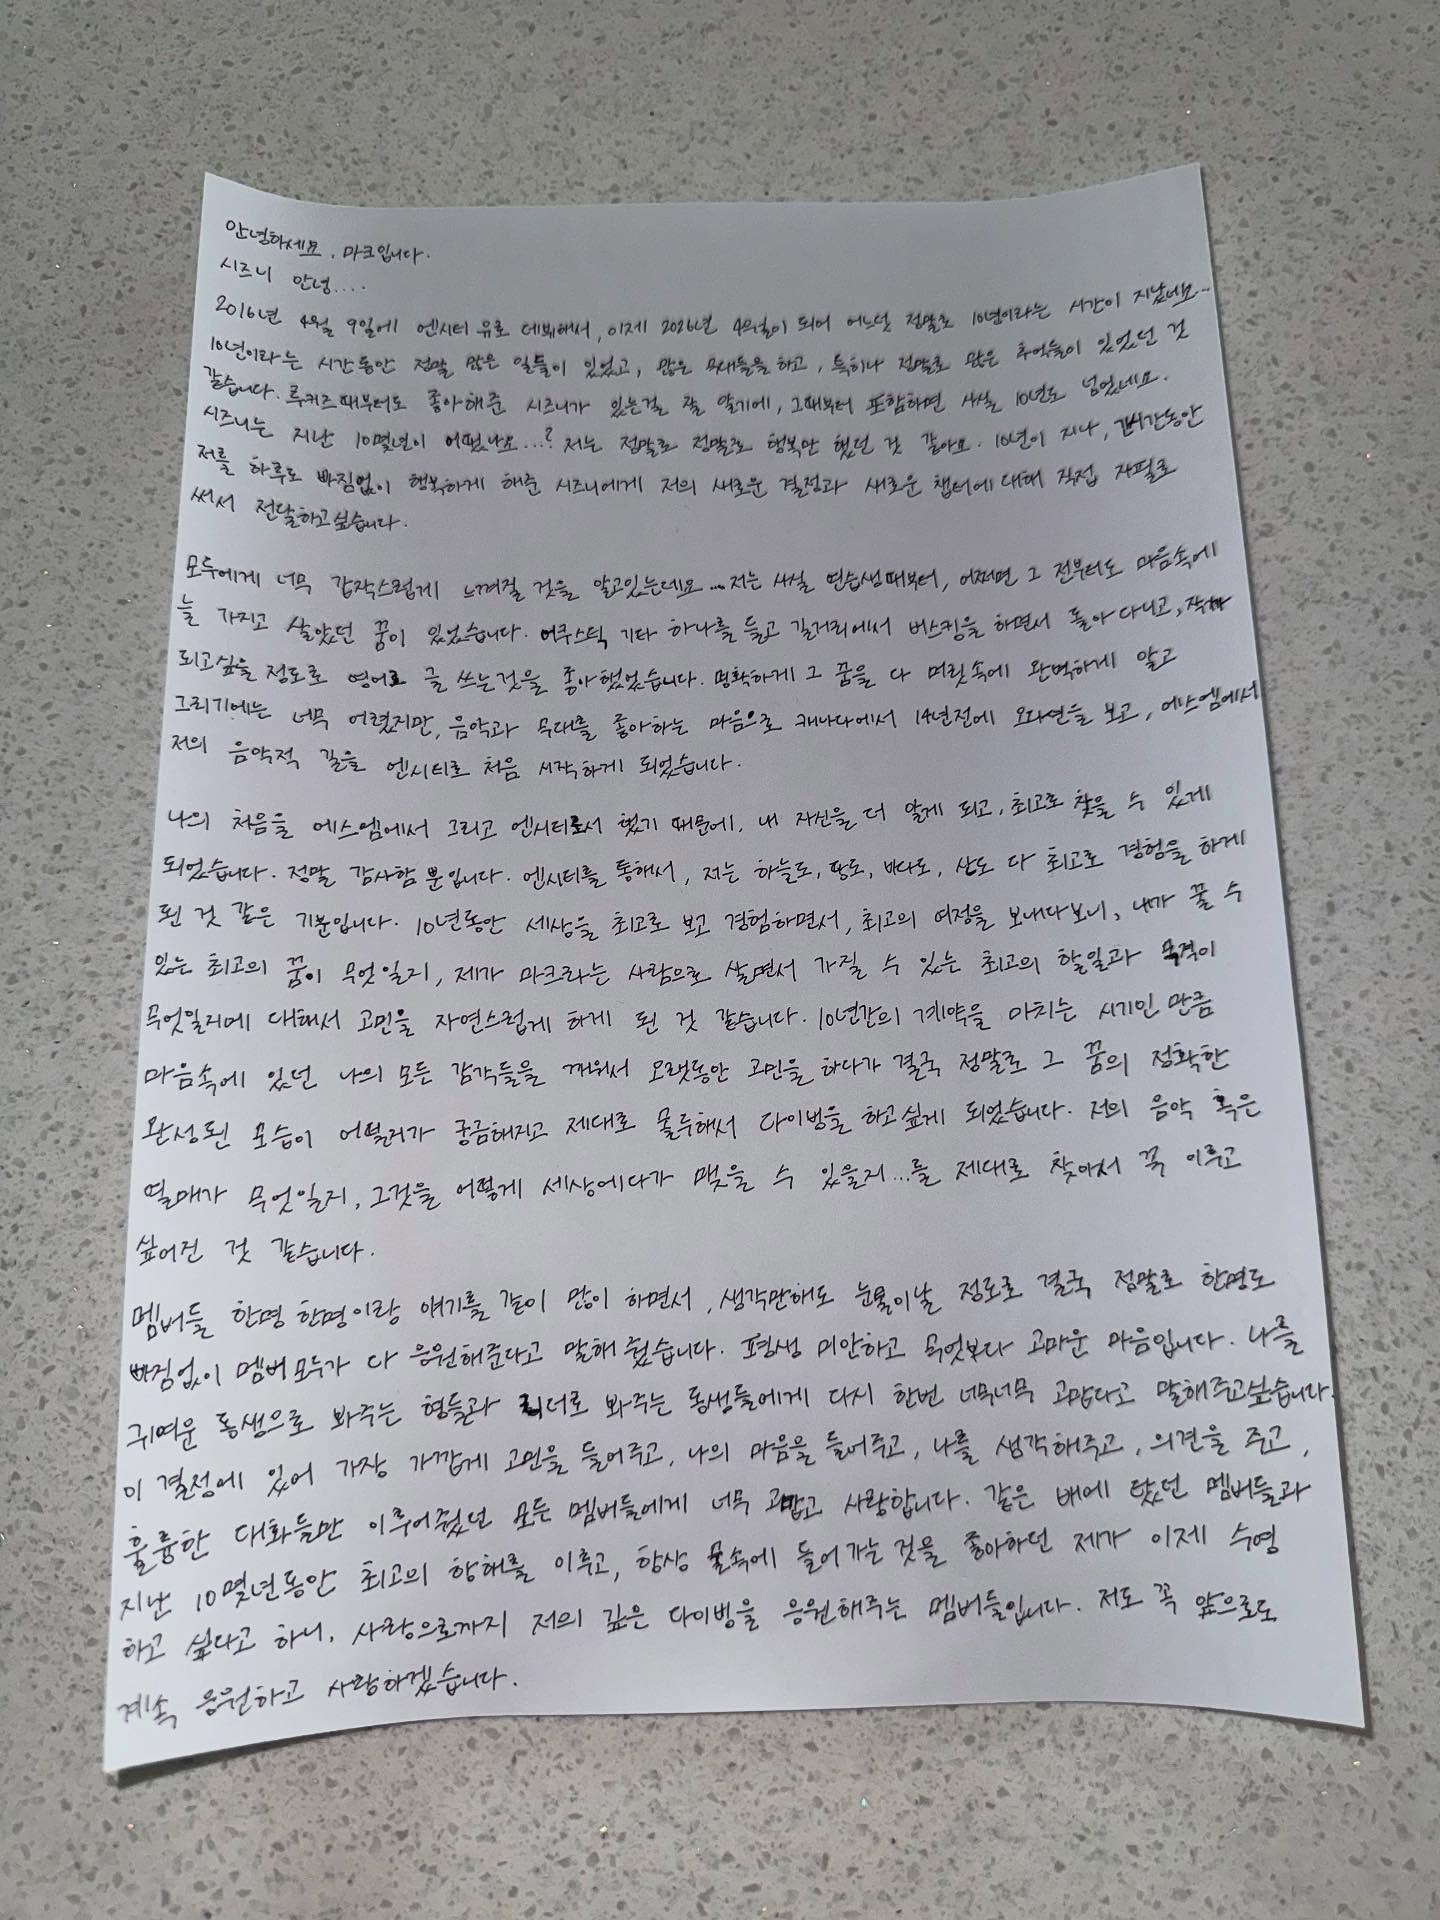 안녕하세요. 마크입니다.
시즈니 안녕....
2016년 4월 9일에 엔시티 유로 데뷔해서, 이제 2026년 4월이 되어 어느덧 정말로 10년이라는 시간이 지났네요...
10년이라는 시간동안 정말 많은 일들이 있었고, 많은 무대들을하고, 특히나 정말로 많은 추억들이 있었던 것
같습니다. 루키즈때부터도 좋아해준 시즈니가 있는걸 잘 알기에, 그때부터 포함하면 사실 10년도 넘었네요.
시즈니는 지난 10몇년이 어땠나요...? 저는 정말로 정말로 행복만 했던 것 같아요. 10년이 지나, 긴시간동안
저를 하루도 빠짐없이 행복하게 해준 시즈니에게 저의 새로운 결정과 새로운 챕터에 대해 직접 자필로
써서 전달하고싶습니다.
모두에게 너무 갑작스럽게 느껴질 것을 알고있는데요... 저는 사실 연습생때부터, 어쩌면 그 전부터도 마음속에
늘 가지고 살았던 꿈이 있었습니다. 어쿠스틱 기타 하나를 들고 길거리에서 버스킹을 하면서 돌아다니고, 작가
되고싶을 정도로 영어로 글 쓰는것을 좋아했었습니다. 명확하게 그 꿈을 다 머릿속에 완벽하게 알고
그리기에는 너무 어렸지만, 음악과 무대를 좋아하는 마음으로 캐나다에서 14년전에 오디션을 보고, 에스엠에서
저의 음악적 길을 엔시티로 처음 시작하게 되었습니다.
나의 처음을 에스엠에서 그리고 엔시티로서 했기 때문에, 내 자신을 더 알게 되고, 최고로 찾을 수 있게
되었습니다. 정말 감사할 뿐입니다. 엔시티를 통해서, 저는 하늘도, 땅도, 바다도, 산도 다 최고로 경험을 하게
된 것 같은 기분입니다. 10년동안 세상을 최고로 보고 경험하면서, 최고의 여정을 보내다보니, 내가 꿀 수
있는 최고의 꿈이 무엇일지, 제가 마크라는 사람으로 살면서 가질 수 있는 최고의 할일과 목적이
무엇일지에 대해서 고민을 자연스럽게 하게 된 것 같습니다. 10년간의 계약을 마치는 시기인 만큼
마음속에 있던 나의 모든 감각들을 깨워서 오랫동안 고민을 하다가 결국 정말로 그 꿈의 정확한
완성된 모습이 어떨지가 궁금해지고 제대로 몰두해서 다이빙을 하고싶게 되었습니다. 저의 음악 혹은
열매가 무엇일지, 그것을 어떻게 세상에다가 맺을 수 있을지...를 제대로 찾아서 꼭 이루고
싶어진 것 같습니다.
멤버들 한명 한명이랑 얘기를 같이 많이 하면서, 생각만해도 눈물이날 정도로 결국 정말로 한명도
빠짐없이 멤버 모두가 다 응원해준다고 말해 줬습니다. 평생 미안하고 무엇보다 고마운 마음입니다. 나를
귀여운 동생으로 봐주는 형들과 리더로 봐주는 동생들에게 다시 한번 너무너무 고맙다고 말해주고싶습니다.
이 결정에 있어 가장 가깝게 고민을 들어주고, 나의 마음을 들어주고, 나를 생각해주고, 의견을 주고,
훌륭한 대화들만 이루어줬던 모든 멤버들에게 너무 고맙고 사랑합니다. 같은 배에 탔던 멤버들과
지난 10몇년동안 최고의 항해를 이루고, 항상 물속에 들어가는것을 좋아하던 제가 이제 수영
하고 싶다고 하니, 사랑으로까지 저의 깊은 다이빙을 응원해주는 멤버들입니다. 저도 꼭 앞으로도
계속 응원하고 사랑하겠습니다.